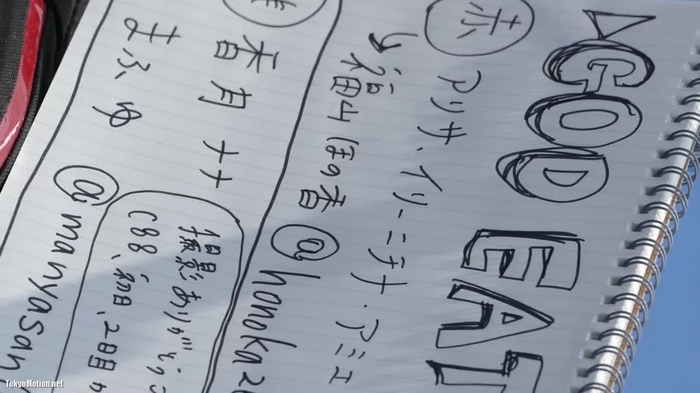 GOD EAT
赤
アリサ・イリーニチナ・アミエ
↳福山ほの香 @honoka20
香月ナナ
まふゆ @manyasan
撮影ありがとうご
C88、初日、2日目
TokyoMotion.net